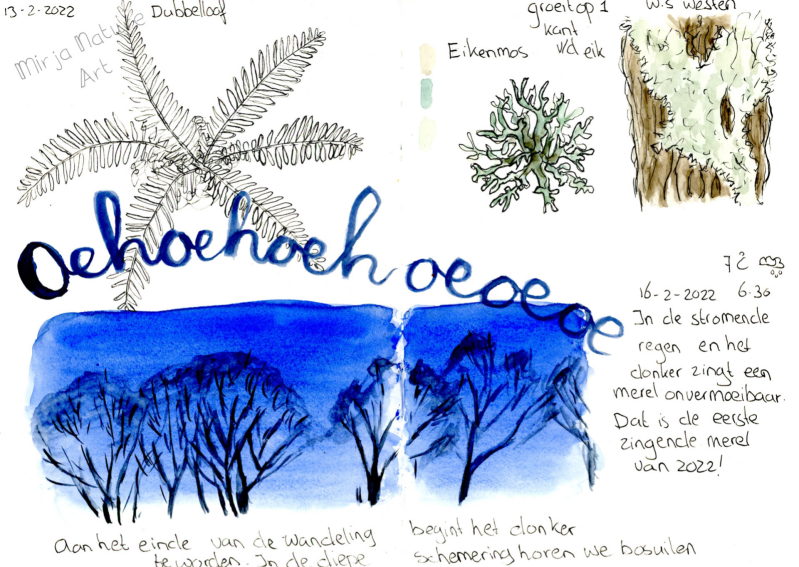 13-2-2022
Dubbelloof
Mirja Nature
Art
Eikenmos
groeit op 1
kant
v/d eik
w.s westen
Oehoehoeh oeoeoe
7°C
16-2-2022 6.30
In de stromende
regen en het
donker zingt een
merel onvermoeibaar.
Dat is de eerste
zingende merel
van 2022!
Aan het einde van de wandeling
te worden. In de diepe
begint het donker
schemering horen we bosuilen